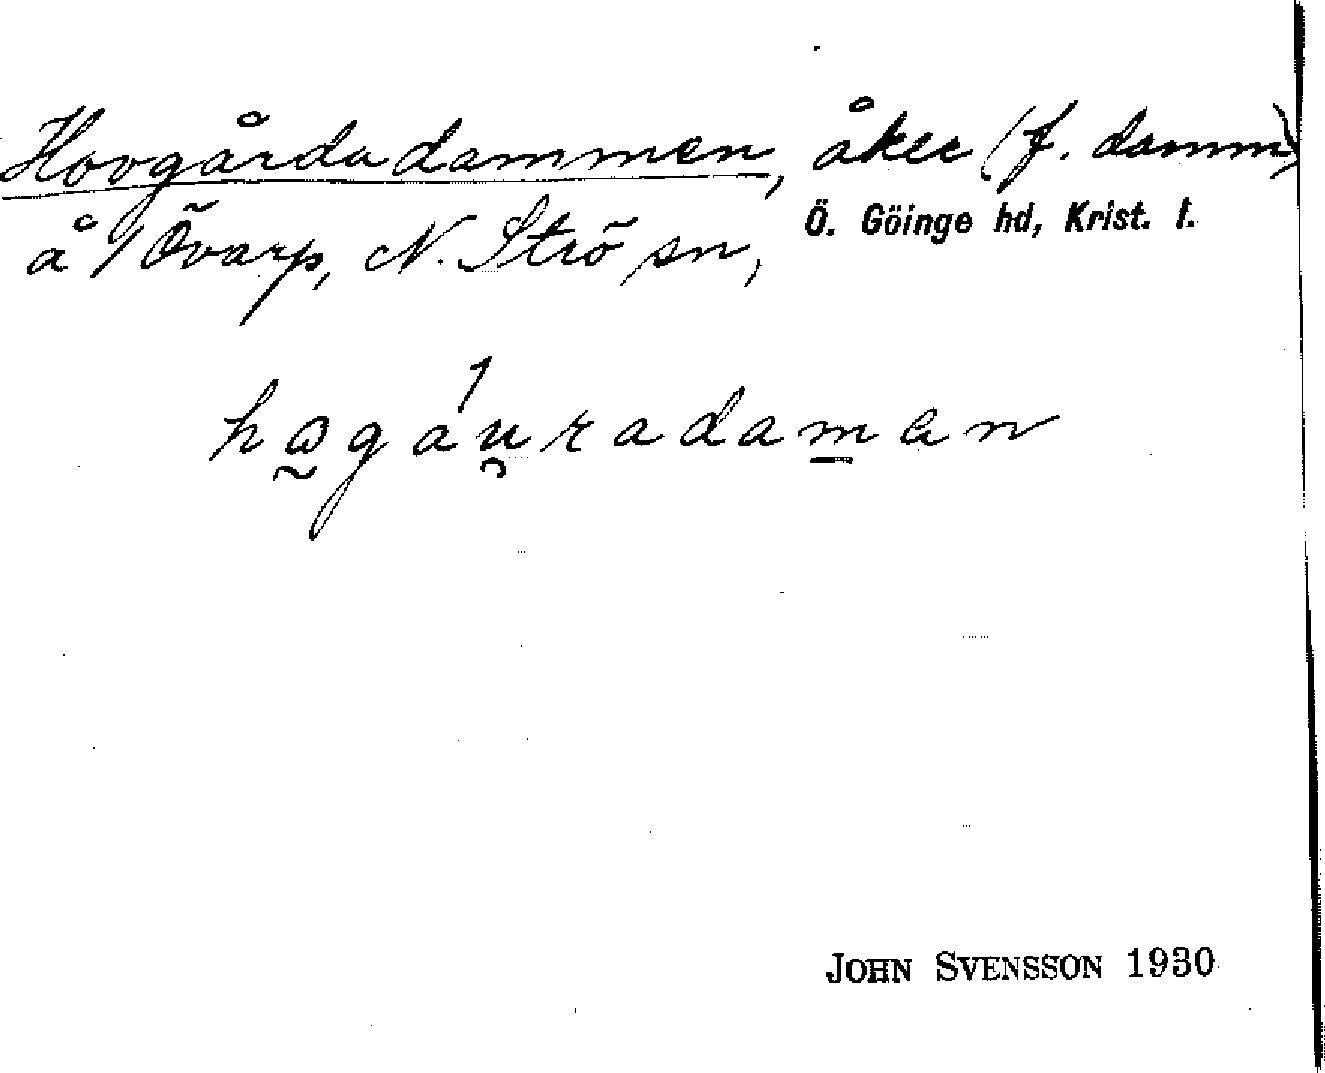 Hovgårdadammen, åker (f. damm)
å 1 Övarp, N. Strö sn, Ö. Göinge hd, Krist. l.
hɷgáu̯radam̲ɑn
JOHN SVENSSON 1930